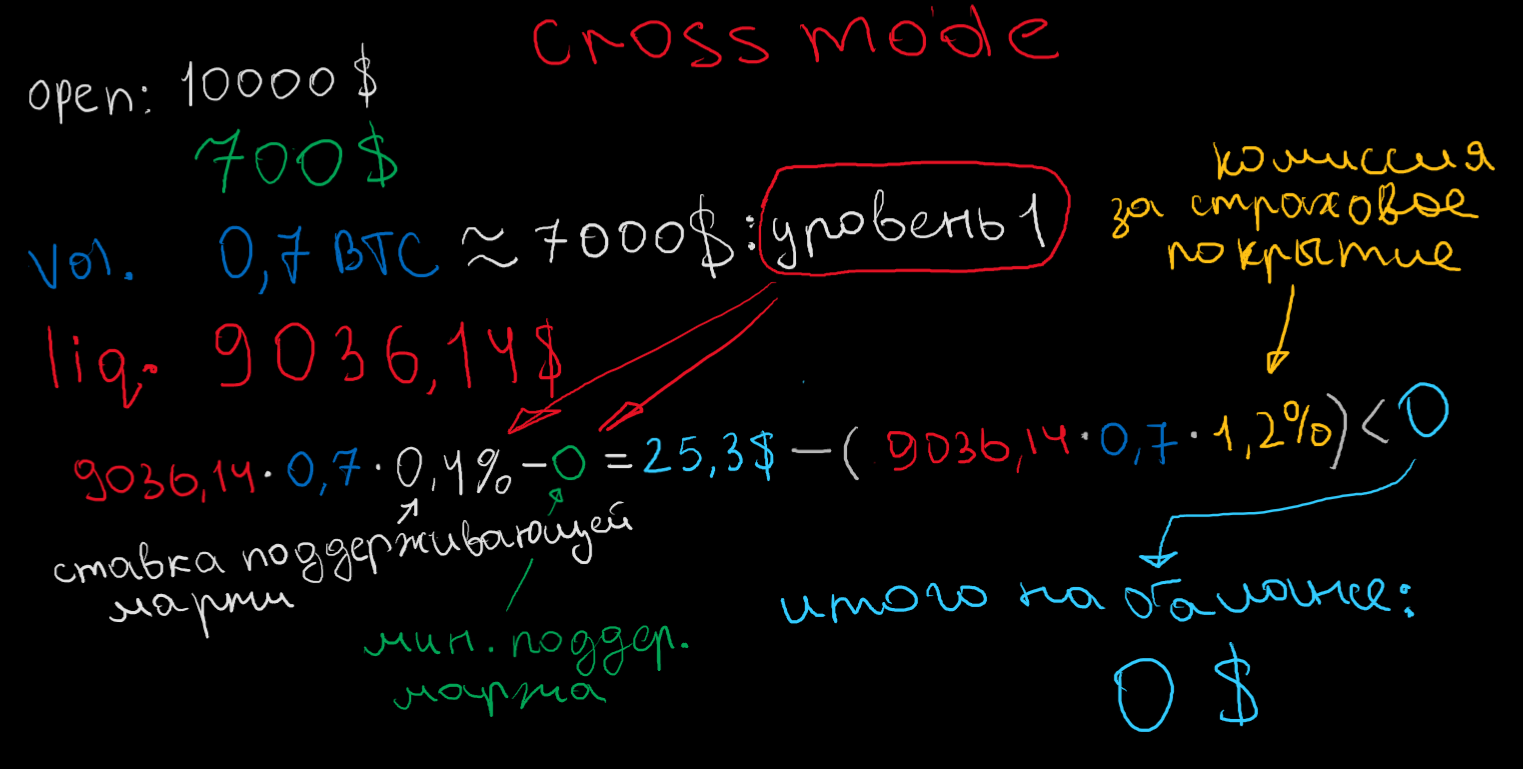 cross mode
open: 10000$
700$
vol. 0,7 BTC ≈ 7000$: уровень 1
комиссия
за страховое
покрытие
liq. 9036,14$
9036,14 · 0,7 · 0,4% - 0 = 25,3$ - ( 9036,14 · 0,7 · 1,2% ) < 0
ставка поддерживающей
маржи
мин. поддер.
маржа
итого на балансе:
0 $